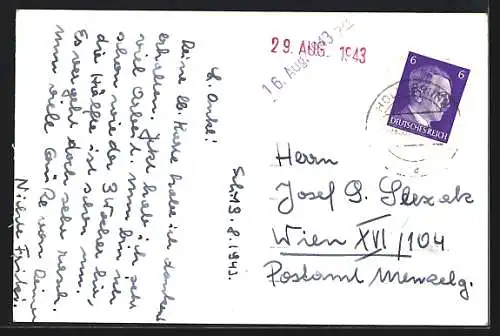 29. AUG. 1943
16. Aug. 1943
6 6
DEUTSCHES REICH
L. Onkel!
Deine lb. Karte habe ich dankend
erhalten. Jetzt hab ich sehr
viel Arbeit. Nun bin ich
schon wieder 3 Wochen hier,
die Hälfte ist schon um.
Es vergeht doch sehr rasch.
Nun viele Grüße von Deiner
Nichte
13.8.1943.
Herrn
Josef
Wien XVI/104
Postamt